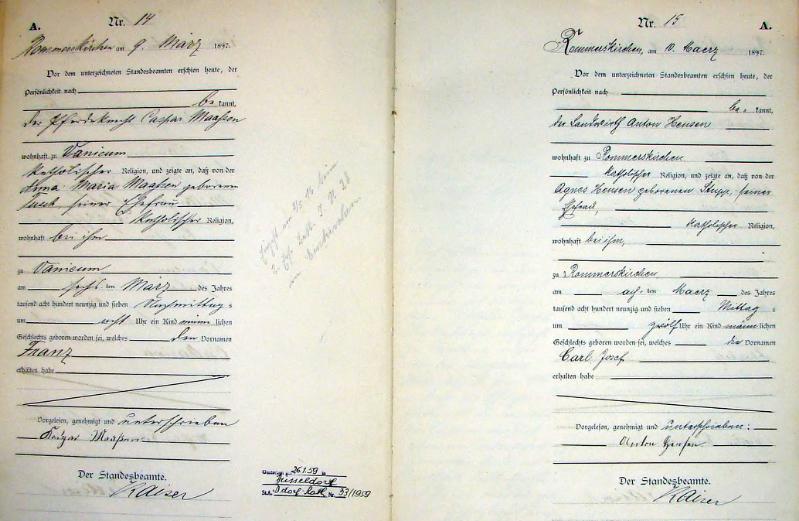 A.
Nr. 14
Rommerskirchen am 9. März 1897.
Vor dem unterzeichneten Standesbeamten erschien heute, der
Persönlichkeit nach
be kannt,
der Pferdeknecht Caspar Maassen
wohnhaft zu Vanicum
katholischer Religion, und zeigte an, daß von der
Anna Maria Maassen geborenen
seiner Ehefrau
katholischer Religion,
wohnhaft bei ihm
zu Vanicum
am sechs ten März des Jahres
tausend acht hundert neunzig und sieben Nachmittag s
um acht Uhr ein Kind männ lichen
Geschlechts geboren worden sei, welches den Vornamen
Franz
erhalten habe
Vorgelesen, genehmigt und unterschrieben
Kaspar Maassen
Der Standesbeamte.
Kaiser
26.1.59
Düsseldorf
53/1959
Nr. 15
A.
Rommerskirchen, am 10. Maerz 1897.
Vor dem unterzeichneten Standesbeamten erschien heute, der
Persönlichkeit nach
be kannt,
der Landwirth Anton Hensen
wohnhaft zu Rommerskirchen
katholischer Religion, und zeigte an, daß von der
Agnes Hensen geborenen Stupp, seiner
Ehefrau,
katholischer Religion,
wohnhaft bei ihm,
zu Rommerskirchen
am ach ten Maerz des Jahres
tausend acht hundert neunzig und sieben Mittag s
um zwölf Uhr ein Kind männ lichen
Geschlechts geboren worden sei, welches die Vornamen
Carl Josef
erhalten habe
Vorgelesen, genehmigt und unterschrieben:
Anton Hensen
Der Standesbeamte.
Kaiser